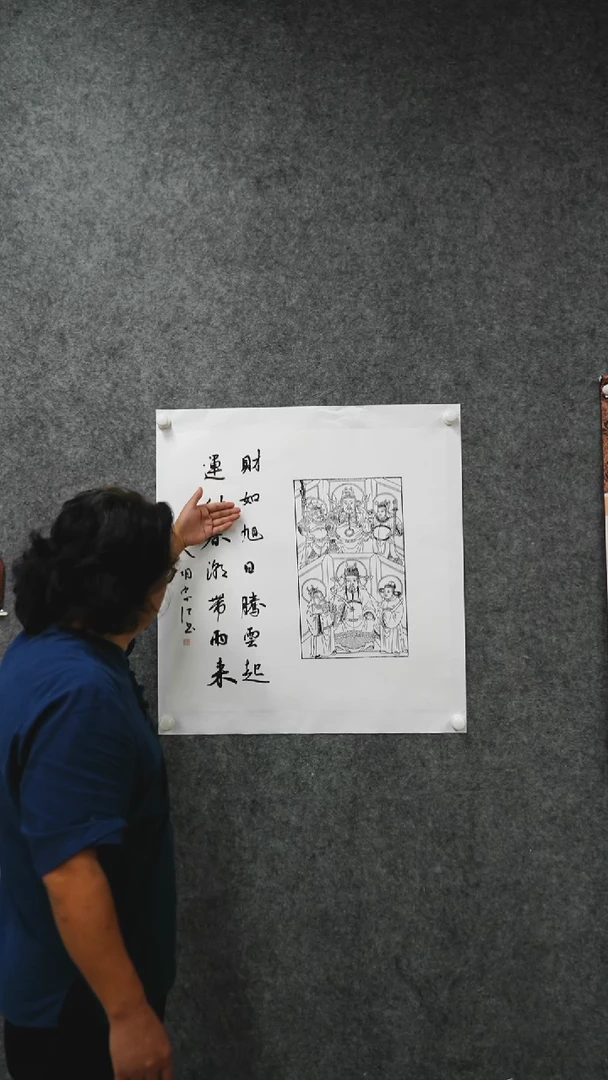 財如旭日騰雲起
運春潮帶雨来
书